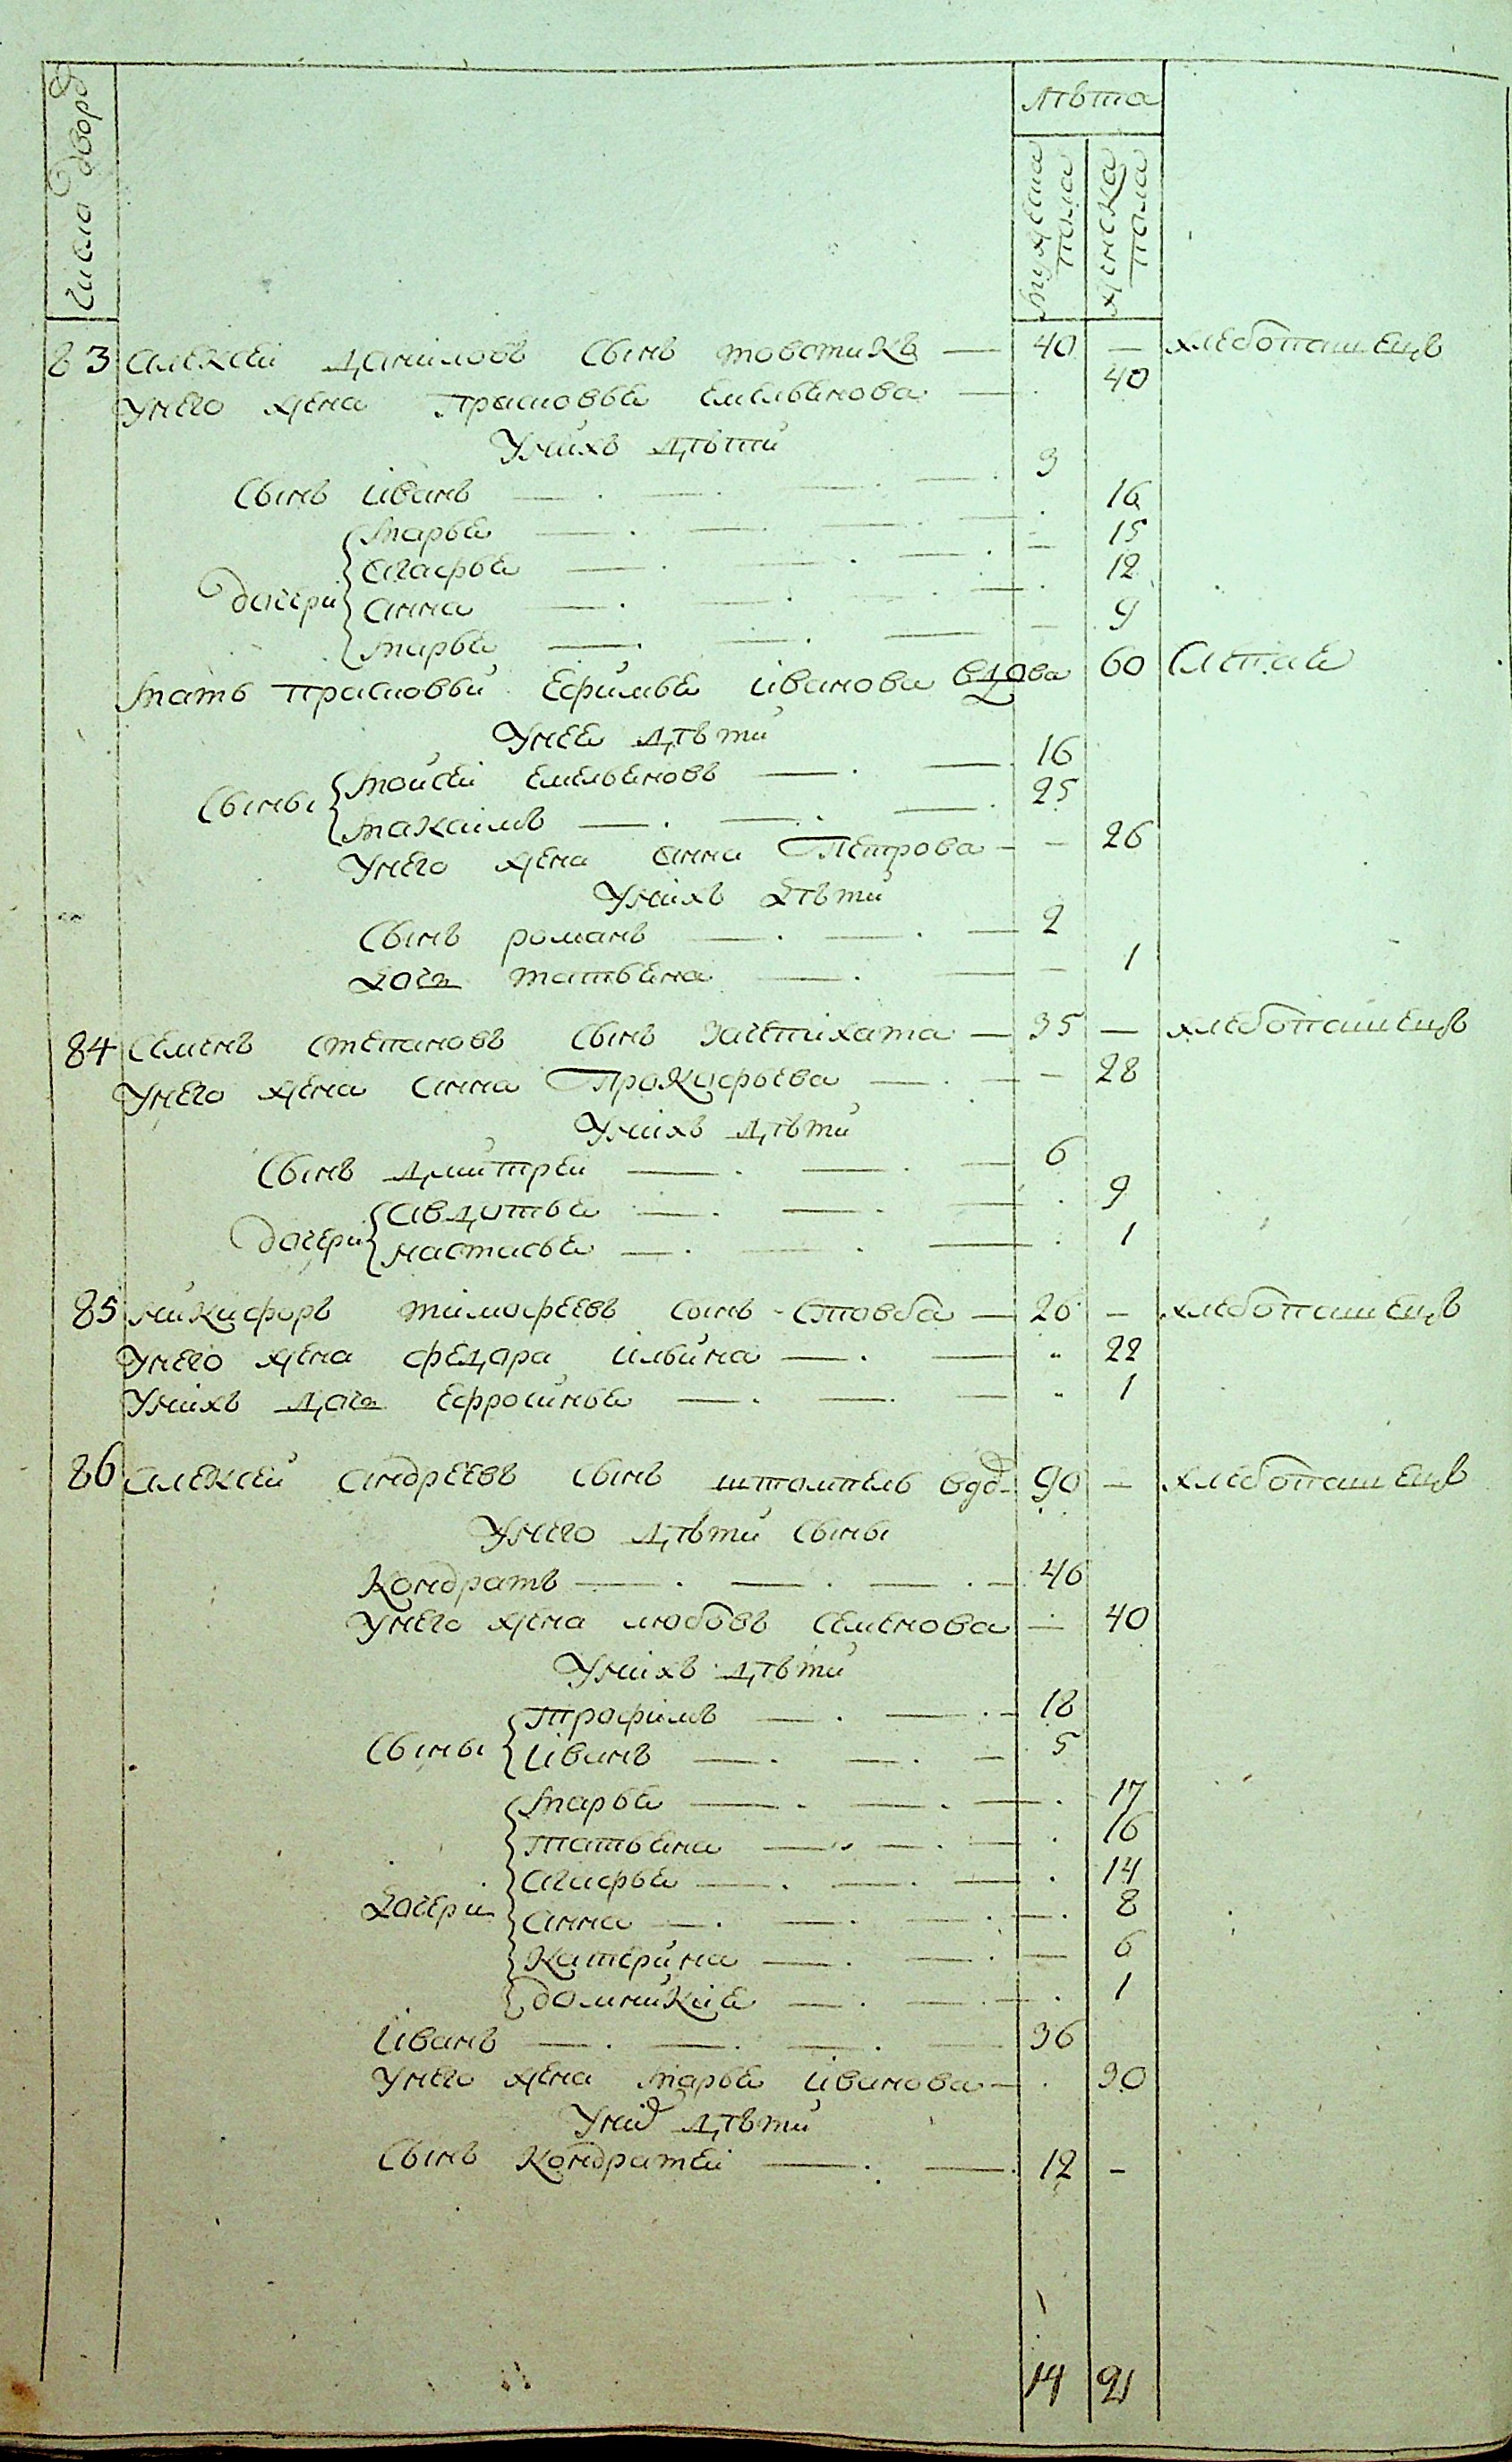 Числа дворѣ
лѣта
мужска пола
женска пола
83 Алексѣй Даниловъ сынъ товстикъ — 40 — хлебопашецъ
У него жена Прасковѣя Емельянова — 40
У нихъ дѣти
Сынъ Иванъ 3
Марья 16
Агафья — 15
дочери Анна 12
Марья — 9
Мать Прасковьи Ефимья Иванова вдова 60 слепая
У нее дѣти
Моисей Емельяновъ 16
Сыны
Макаимъ 25
У него жена Анна Петрова — 26
У нихъ дѣти
Сынъ романъ 2
дочь татьяна — 1
84 Семенъ степановъ сынъ Зачепихата — 35 — хлебопашецъ
У него жена Анна Прокофьева — 28
У нихъ дѣти
Сынъ дмитрей 6
Авдотья 9
дочери
настасья 1
85 никифоръ тимофеевъ сынъ Стовба — 26 — хлебопашецъ
У него жена федора Ильина 22
У нихъ дочь Ефросинья 1
86 Алексей Андреевъ сынъ штомпель вдо 90 — хлебопашецъ
У него дѣти сыны
Кондратъ 46
У него жена любовъ Семенова — 40
У нихъ дѣти
Трофимъ 18
Сыны Иванъ 5
Марья 17
Татьяна 16
Агафья 14
дочери Анна 8
Катерина — 6
домникия 1
Иванъ 36
У него жена Марья Иванова 30
У них дѣти
Сынъ Кондратей 12 —
14 21